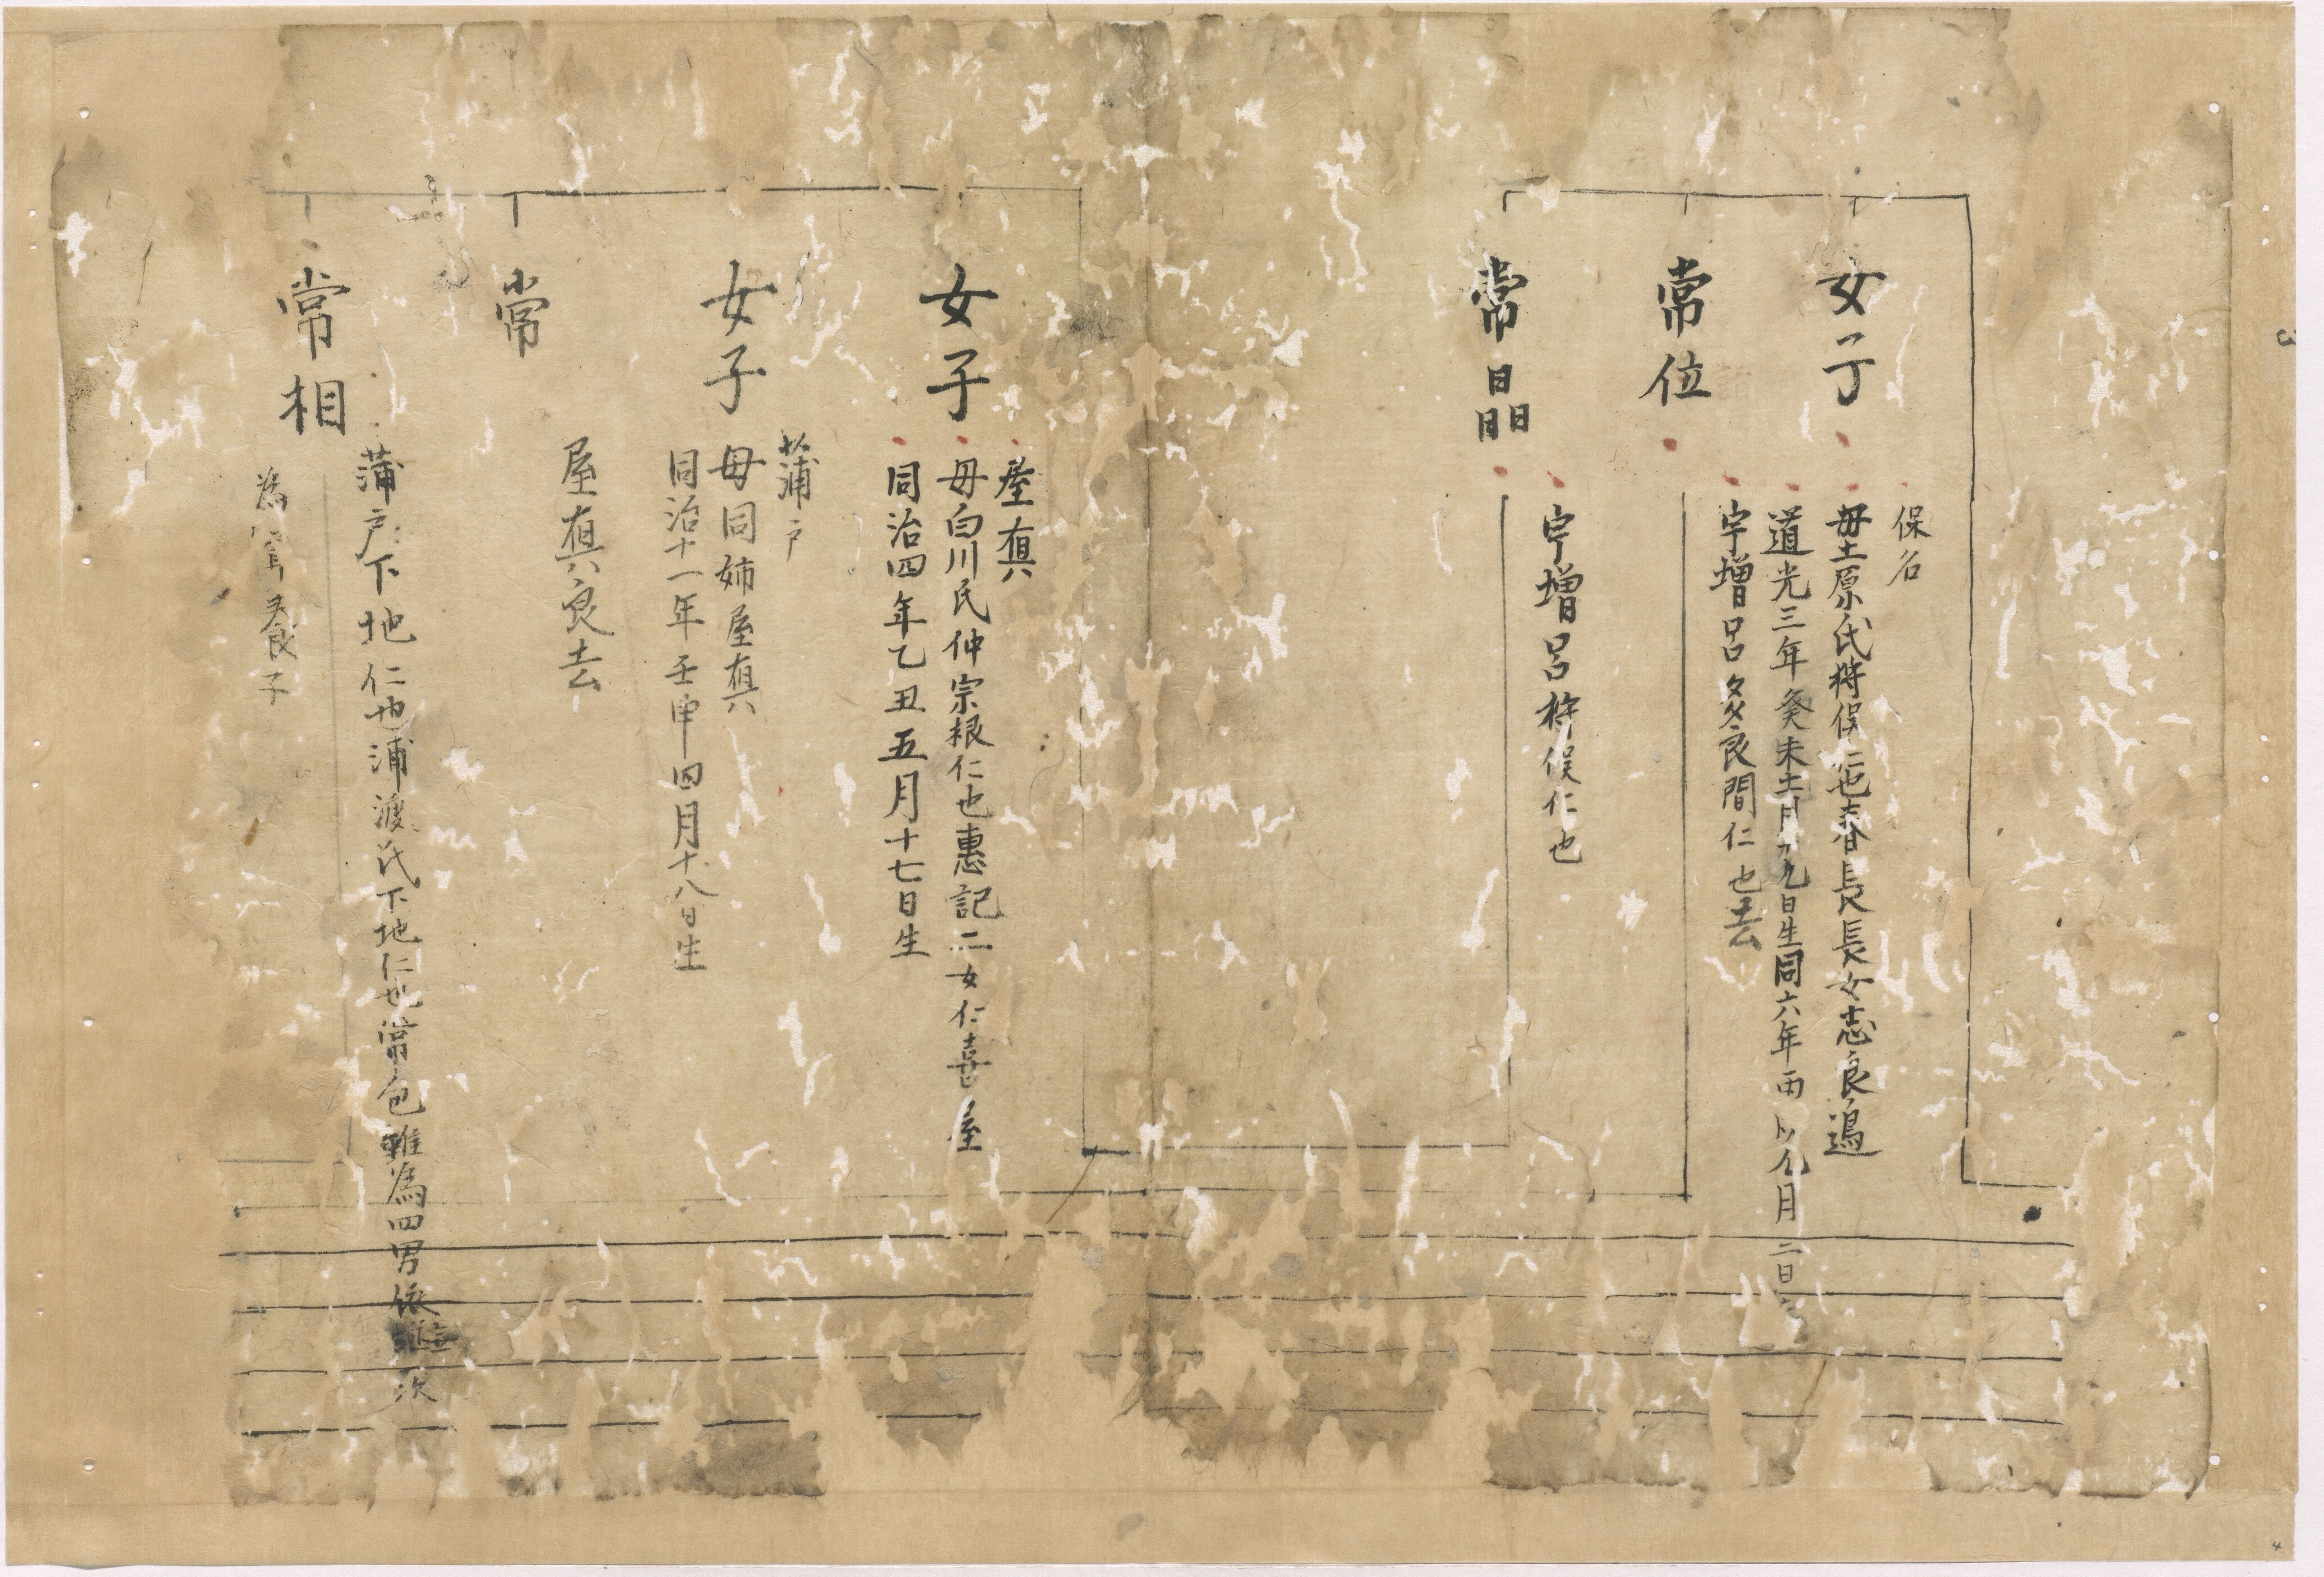 女子
保名
母土原氏將俣仁也春長長女志良過
道光三年癸未十一月九日生同六年丙八月二日
常位
宇增呂多良間仁也去
常晶
宇增呂將俣仁也
女子
屋真
母白川氏仲宗根仁也惠記二女仁喜屋
同治四年乙丑五月十七日生
女子
蒲戸
母同姉屋真
同治十一年壬申四月十八日生
常
屋真良去
常相
蒲戸下地仁也浦渡氏下地仁也常包雖為四男依
次
為養子